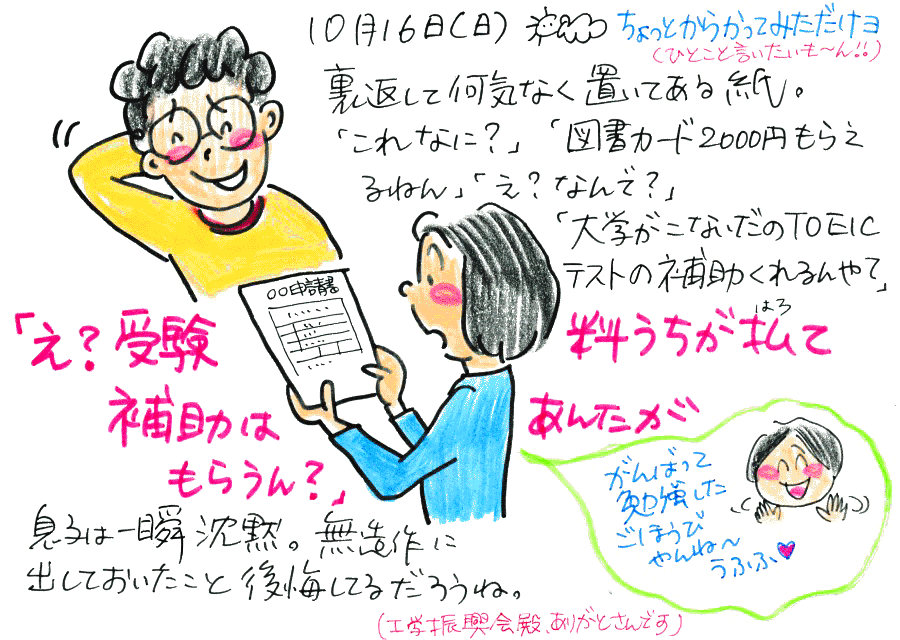 10月16日(日)
ちょっとからかってみただけヨ
(ひとこと言いたいも〜ん!!)
裏返して何気なく置いてある紙。
「これなに?」「図書カード2000円もらえ
るねん」「え?なんで?」
「大学がこないだのTOEIC
テストの補助くれるんやて」
〇〇申請書
「え?受験料うちが払て
はろ
補助はあんたが
もらうん?」
がんばって
勉強した
ごほうび
やんね〜
うふふ♥
息子は一瞬沈黙。無造作に
出しておいたこと後悔してるだろうね。
(工学振興会殿、ありがとさんです)